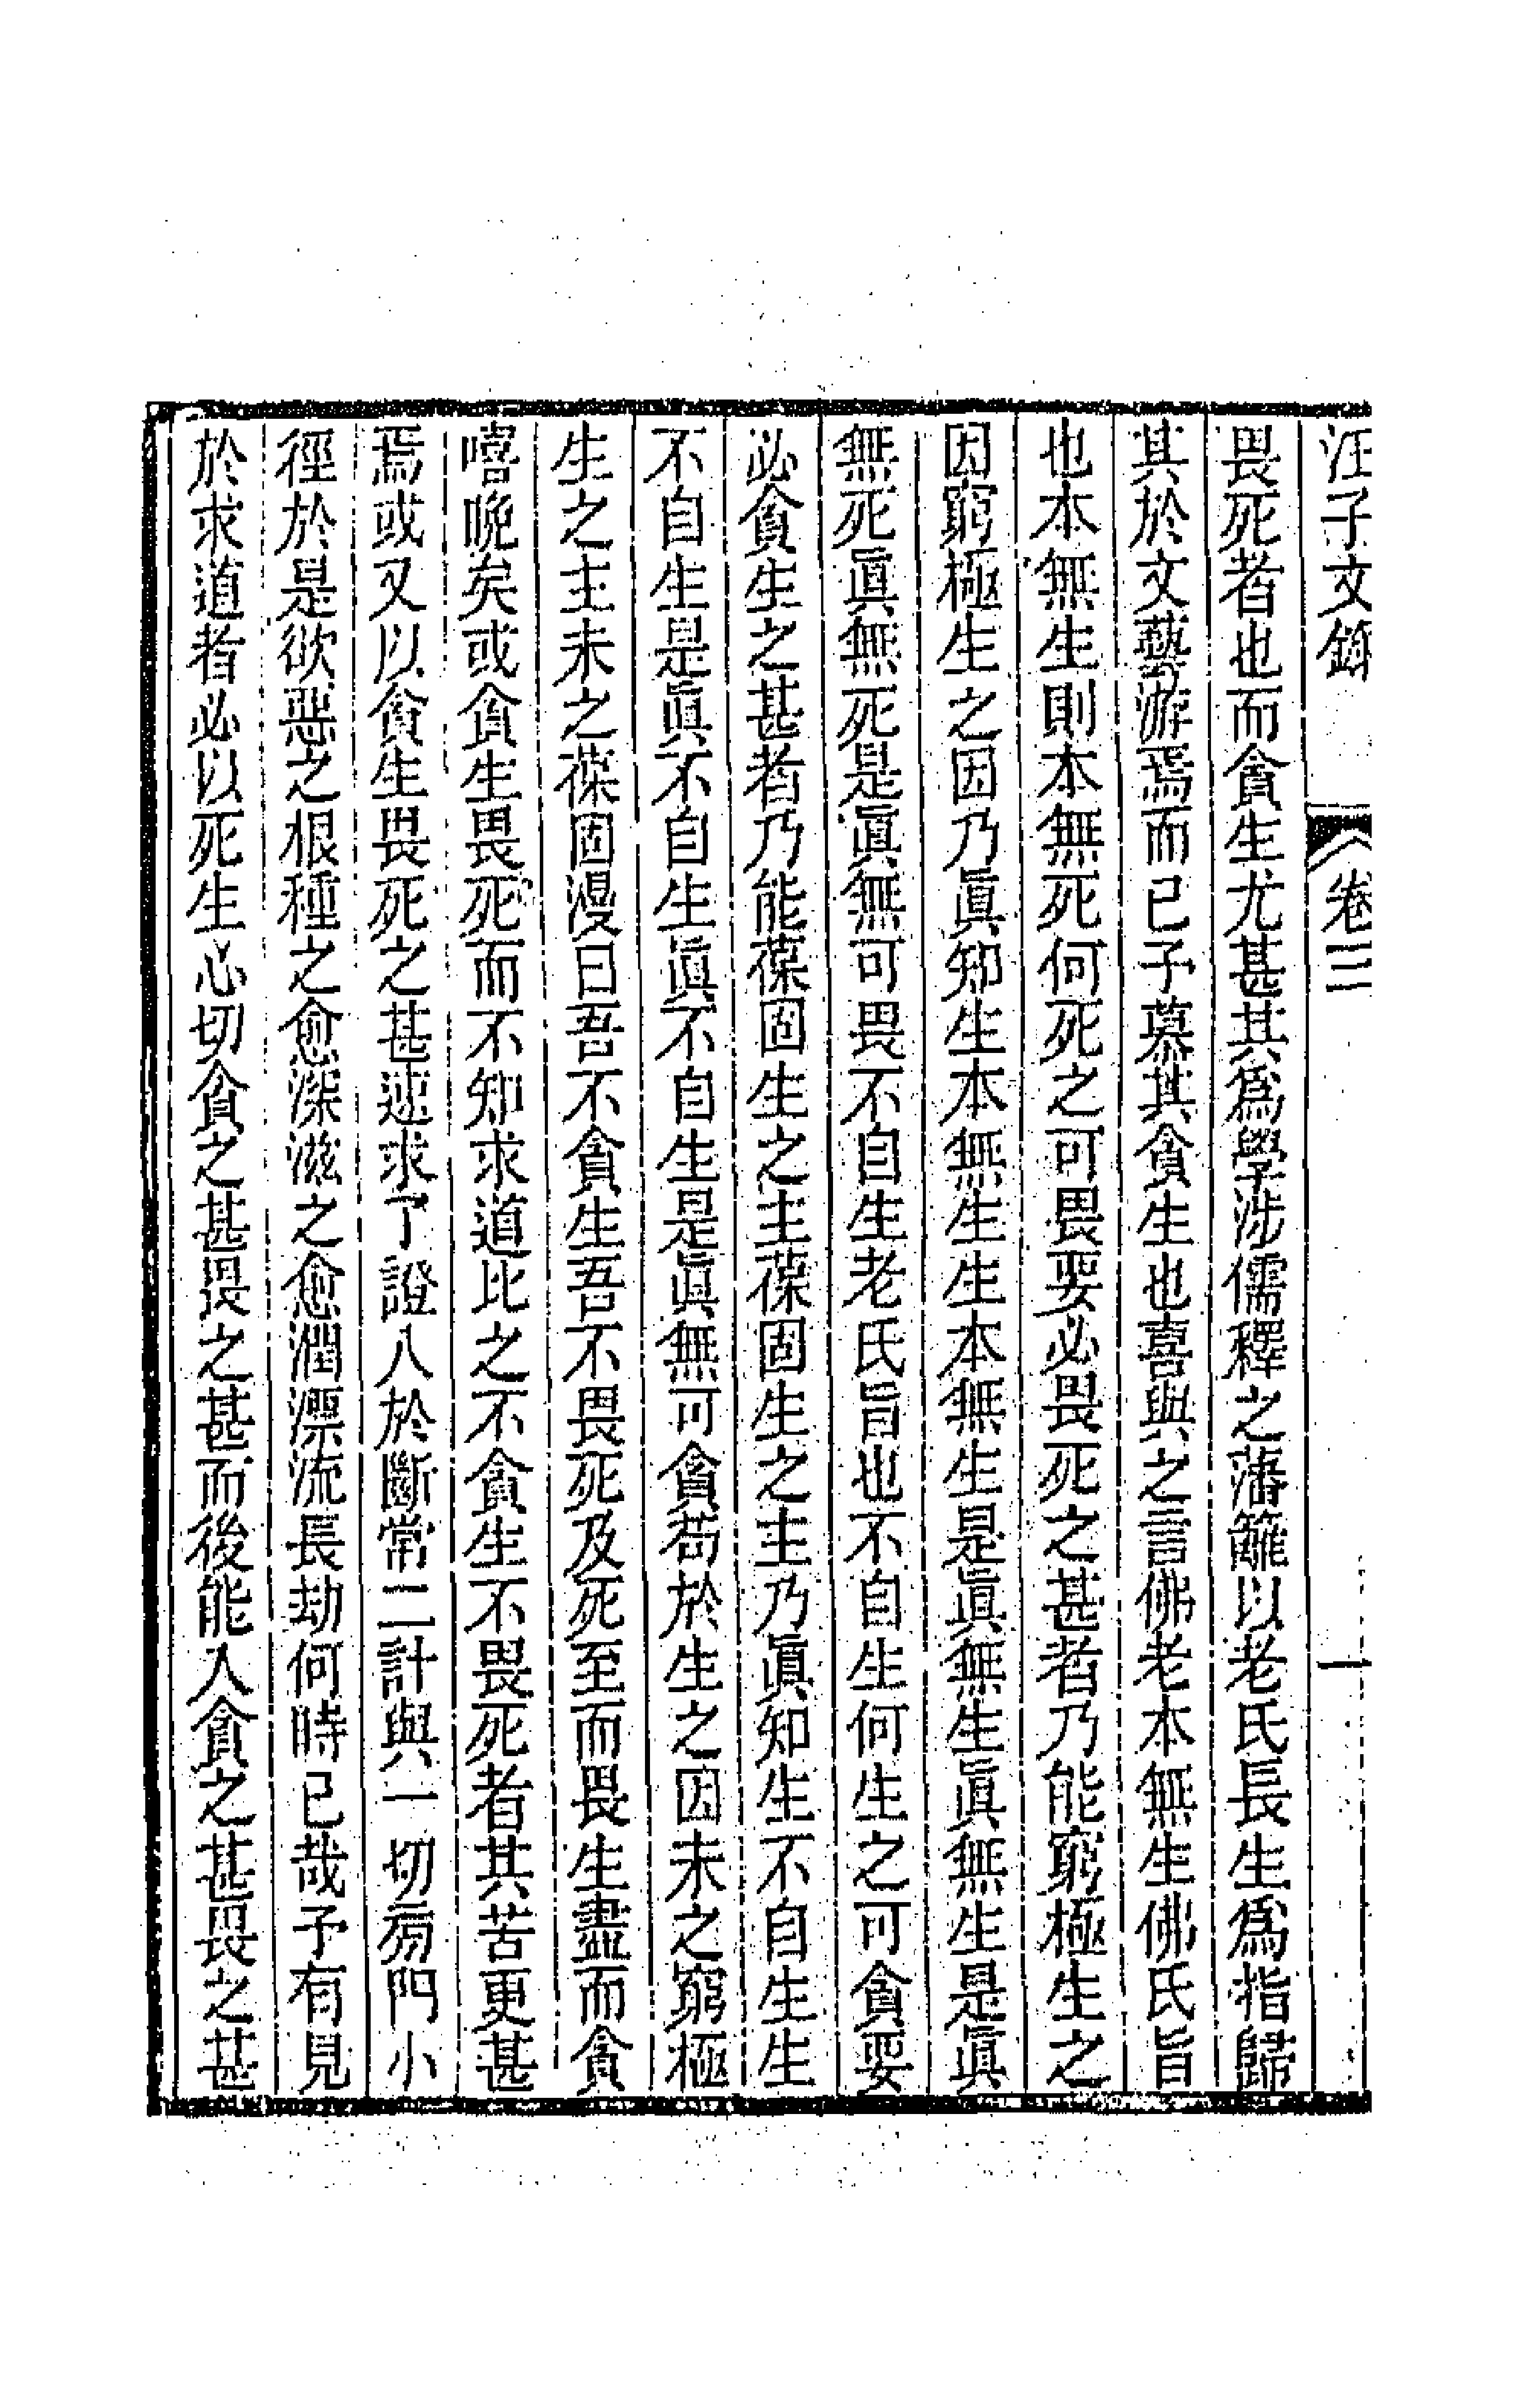 汪子文錄 卷三 一
畏死者也而貪生尤甚其爲學涉儒釋之藩籬以老氏長生爲指歸
其於文藝游焉而已予慕其貪生也喜與之言佛老本無生佛氏旨
也本無生則本無死何死之可畏要必畏死之甚者乃能窮極生之
因窮極生之因乃眞知生本無生生本無生是眞無生眞無生是眞
無死眞無死是眞無可畏不自生老氏旨也不自生何生之可貪要
必貪生之甚者乃能葆固生之主葆固生之主乃眞知生不自生生
不自生是眞不自生眞不自生是眞無可貪苟於生之因未之窮極
生之主未之葆固漫曰吾不貪生吾不畏死及死至而畏生盡而貪
嘻晚矣或貪生畏死而不知求道比之不貪生不畏死者其苦更甚
焉或又以貪生畏死之甚速求了證入於斷常二計與一切旁門小
徑於是欲惡之根種之愈深滋之愈潤漂流長劫何時已哉予有見
於求道者必以死生心切貪之甚畏之甚而後能入貪之甚畏之甚